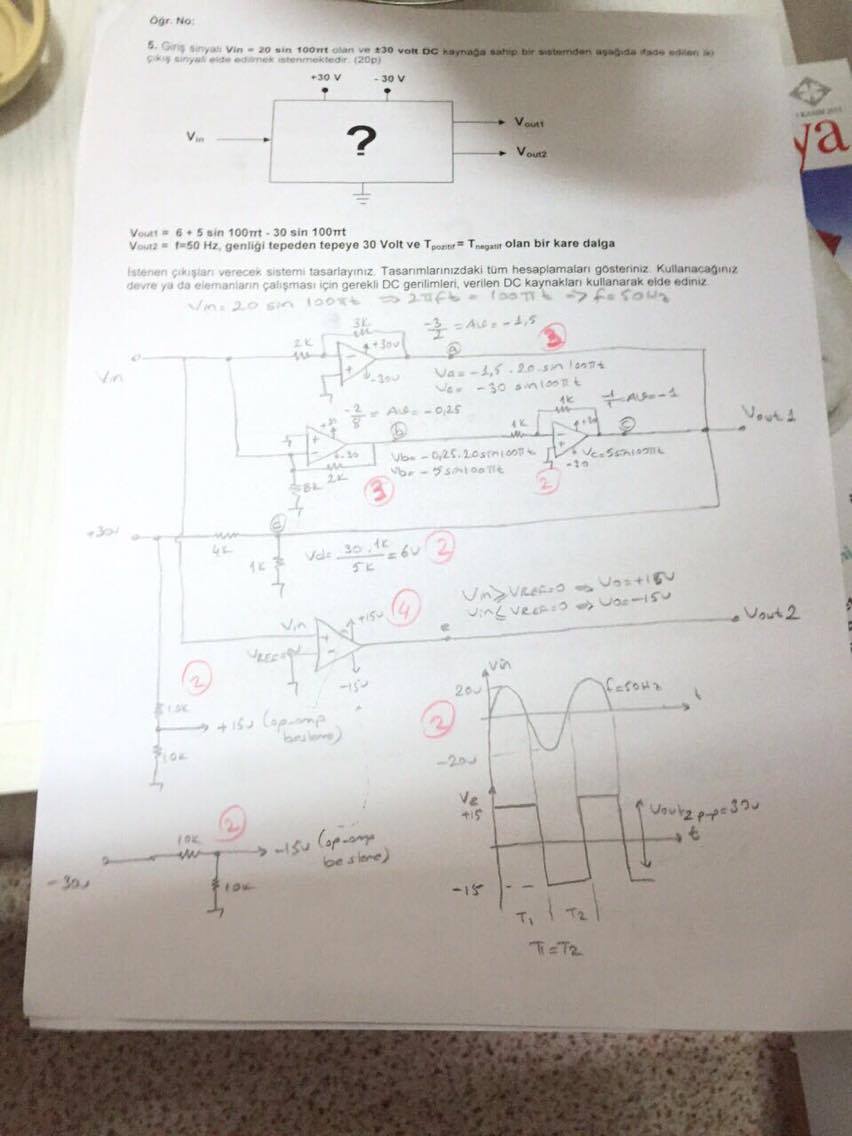 Öğr. No:
5. Giriş sinyali Vin = 20 sin 100πt olan ve ±30 volt DC kaynağa sahip bir sistemden aşağıda ifade edilen iki
çıkış sinyali elde edilmek istenmektedir. (20p)
+30 V - 30 V
Vin
?
Vout1
Vout2
ya
Vout1 = 6 + 5 sin 100πt - 30 sin 100πt
Vout2 = f=50 Hz, genliği tepeden tepeye 30 Volt ve Tpozitif = Tnegatif olan bir kare dalga
İstenen çıkışları verecek sistemi tasarlayınız. Tasarımlarınızdaki tüm hesaplamaları gösteriniz. Kullanacağınız
devre ya da elemanların çalışması için gerekli DC gerilimleri, verilen DC kaynakları kullanarak elde ediniz.
Vin = 20 sin 100πt ⇒ 2πft = 100πt → f = 50Hz
3K
-3/2 = AV = -1,5
3
2K
- +
+30V
-30V
a
Va = -1,5 . 20 . sin 100πt
Va = -30 sin 100πt
Vin
-2/8 = AV = -0,25
1K
-1/1 = AV = -1
+30
b
1K
+30
c
Vout 1
+ -
-30
2K
Vb = -0,25.20 sin 100πt
Vb = -5 sin 100πt
- +
-30
Vc = 5 sin 100πt
8K
3
2
+30V
4K
d
1K
Vd = 30 . 1K / 5K = 6V
2
Vin ≥ VREF=0 ⇒ Vo = +15V
Vin ≤ VREF=0 ⇒ Vo = -15V
4
Vin
+15V
+ -
VREF=0V
-15V
e
Vout 2
2
10K
+15V (op-amp
besleme)
10K
2
Vin
20V
f=50Hz
t
-20V
Ve
+15
Vout2 p-p=30V
t
-15
T1 T2
T1=T2
2
10K
-15V (op-amp
besleme)
-30V
10K